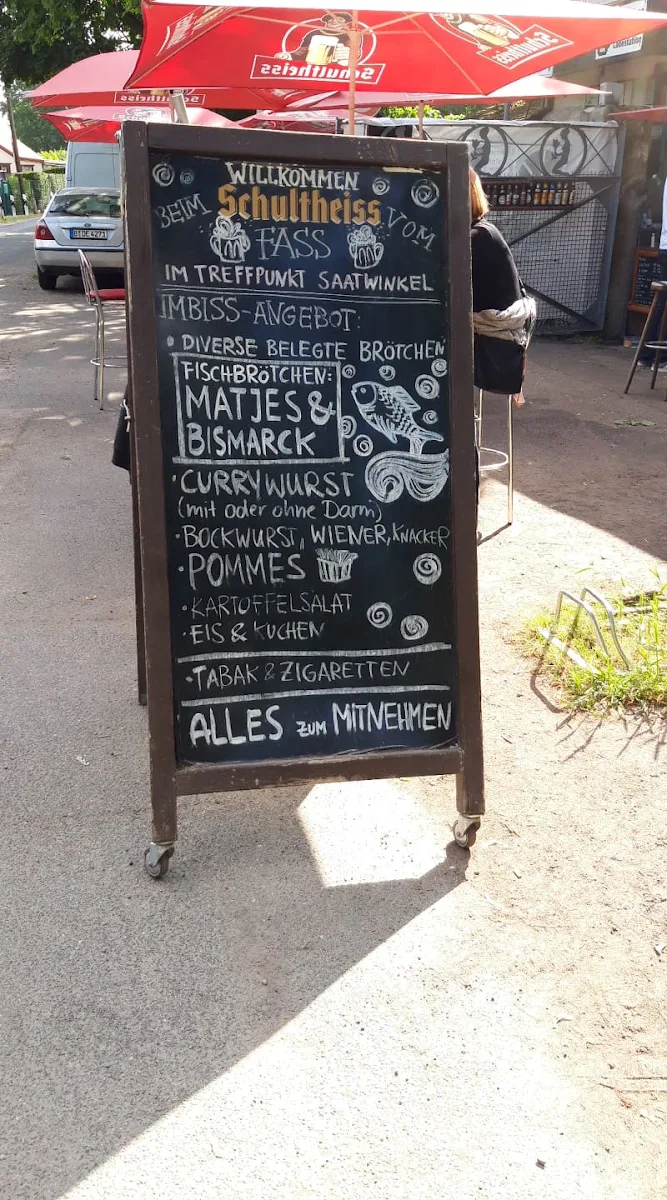 Schultheiss
Schultheiss
Schultheiss
Ladestation
B DE 4271
WILLKOMMEN
BEIM Schultheiss VOM
FASS
IM TREFFPUNKT SAATWINKEL
IMBISS-ANGEBOT:
• DIVERSE BELEGTE BRÖTCHEN
FISCHBRÖTCHEN:
MATJES &
BISMARCK
• CURRYWURST
(mit oder ohne Darm)
• BOCKWURST, WIENER, KNACKER
• POMMES
• KARTOFFELSALAT
• EIS & KUCHEN
• TABAK & ZIGARETTEN
ALLES ZUM MITNEHMEN